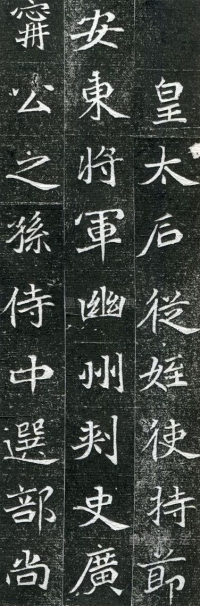 皇太后從姪使持節
安東將軍幽州刺史廣
甯公之孫侍中選部尚